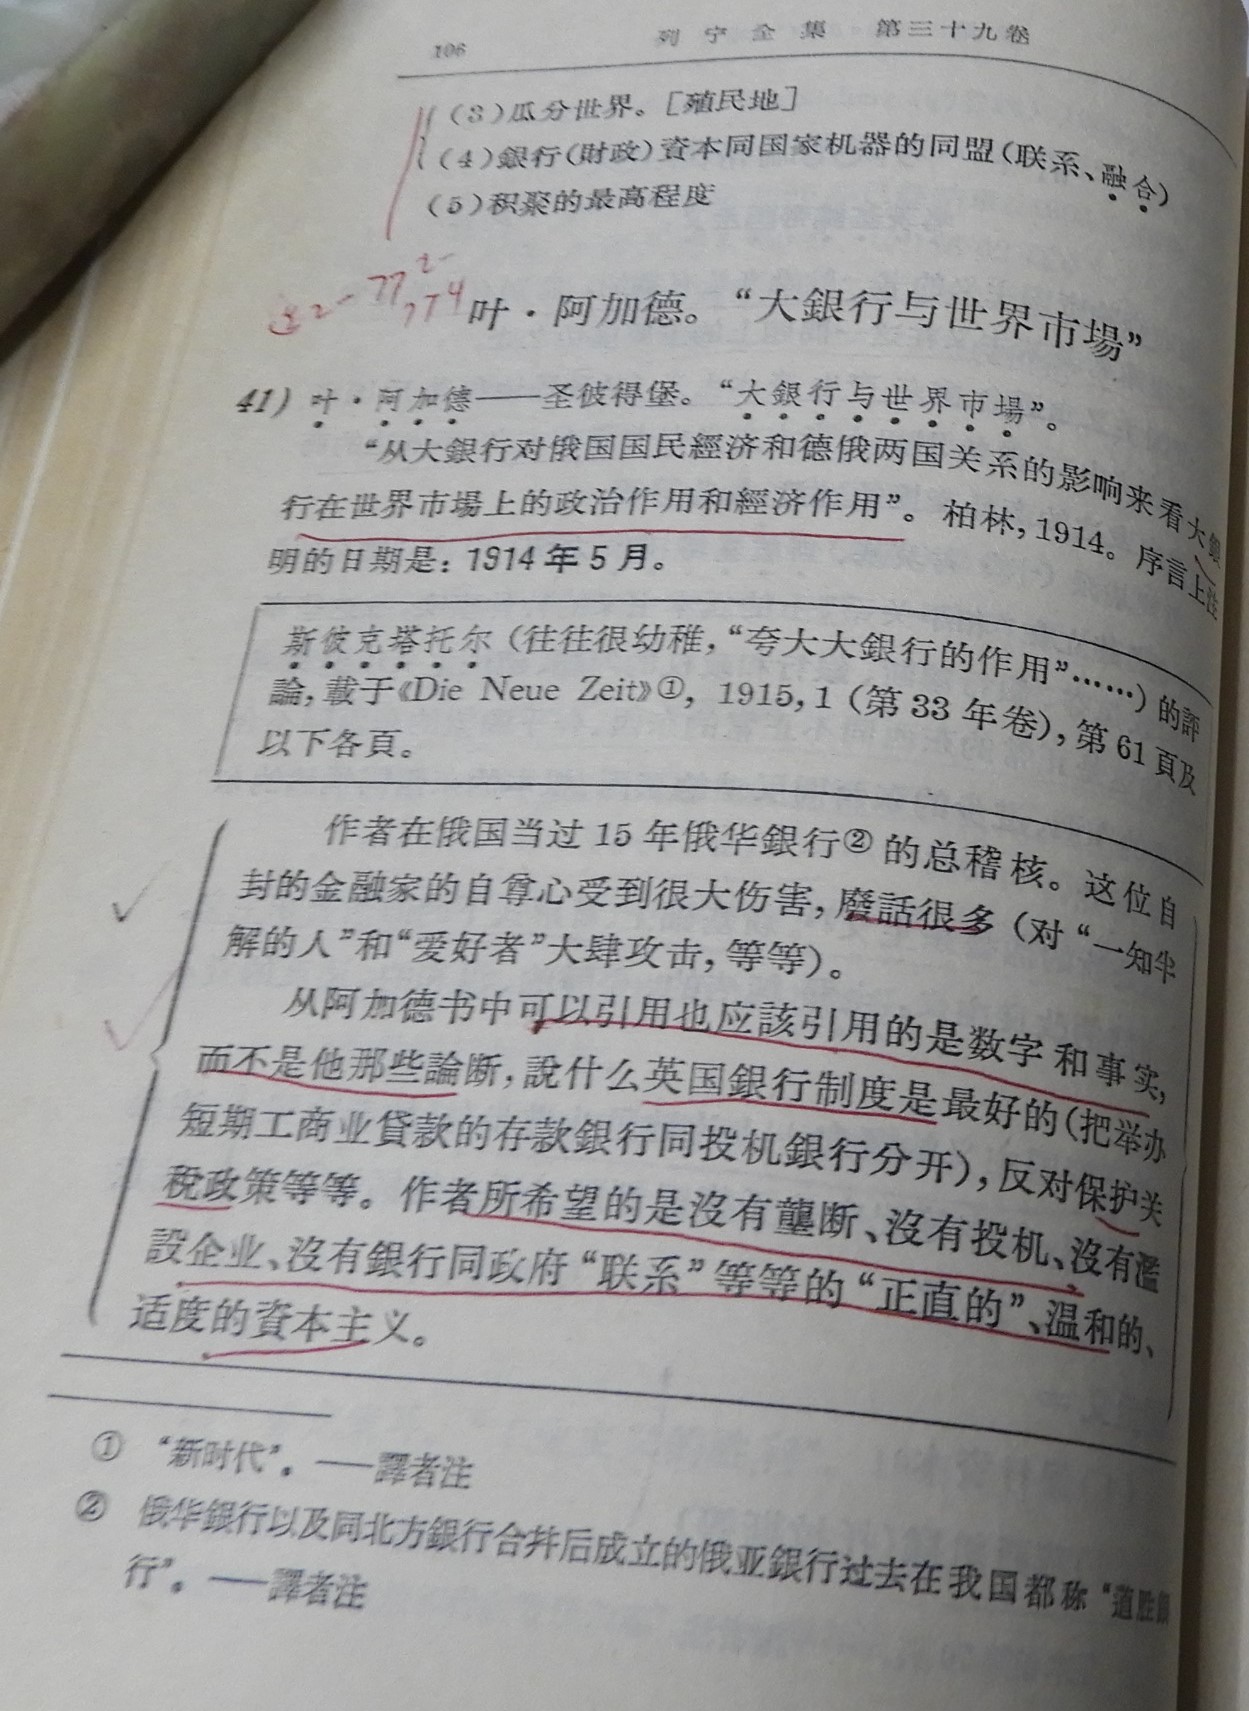 106 列宁全集 第三十九卷
(3)瓜分世界。[殖民地]
(4)銀行(財政)資本同国家机器的同盟(联系、融合)
(5)积聚的最高程度
叶·阿加德。“大銀行与世界市場”
41) 叶·阿加德——圣彼得堡。“大銀行与世界市場”。
“从大銀行对俄国国民經济和德俄两国关系的影响来看大銀
行在世界市場上的政治作用和經济作用”。柏林,1914。序言上注
明的日期是:1914年5月。
斯彼克塔托尔(往往很幼稚,“夸大大銀行的作用”……)的評
論,載于《Die Neue Zeit》①, 1915,1(第33年卷),第61頁及
以下各頁。
作者在俄国当过15年俄华銀行②的总稽核。这位自
封的金融家的自尊心受到很大伤害,廢話很多(对“一知半
解的人”和“爱好者”大肆攻击,等等)。
从阿加德书中可以引用也应該引用的是数字和事实,
而不是他那些論断,說什么英国銀行制度是最好的(把举办
短期工商业貸款的存款銀行同投机銀行分开),反对保护关
稅政策等等。作者所希望的是沒有壟断、沒有投机、沒有濫
設企业、沒有銀行同政府“联系”等等的“正直的”、溫和的、
适度的資本主义。
① “新时代”。——譯者注
② 俄华銀行以及同北方銀行合幷后成立的俄亚銀行过去在我国都称“道胜銀
行”。——譯者注